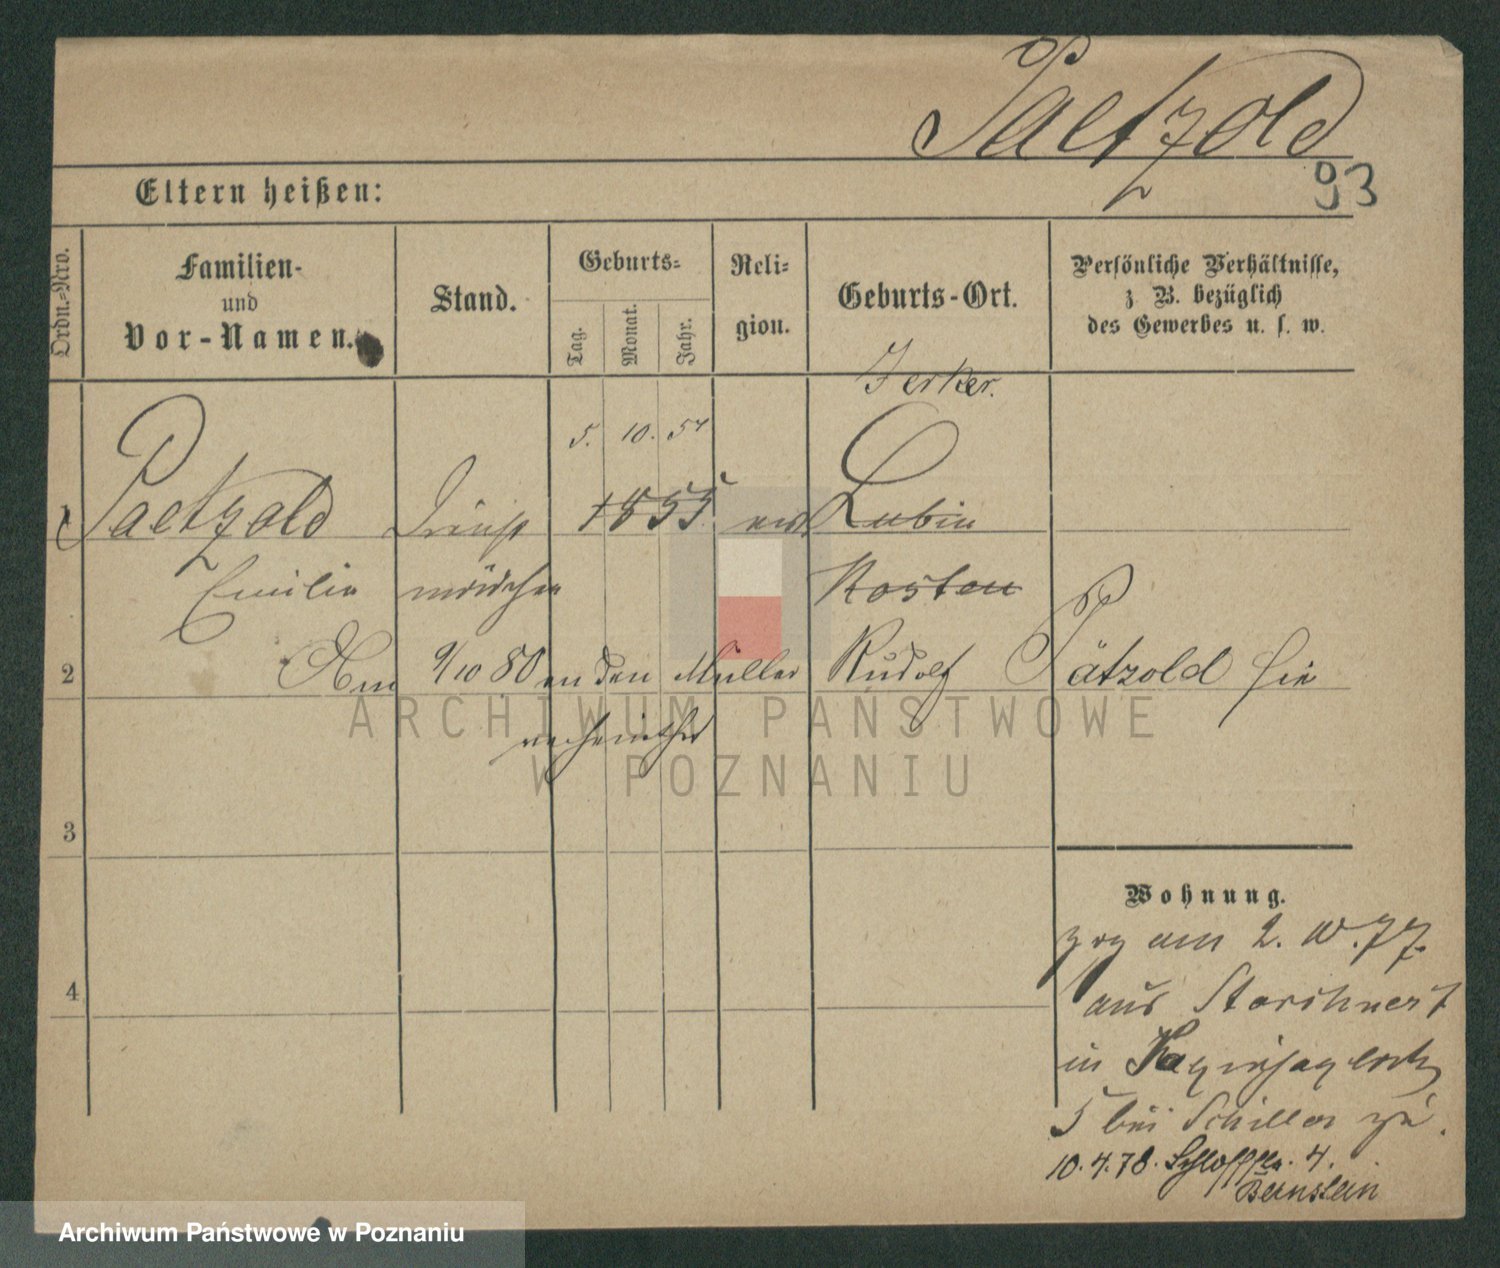 Paetzold
93
Eltern heißen:
Ordn.-Nro.
Familien-
und
Vor-Namen.
Stand.
Geburts-
Tag.
Monat.
Jahr.
Reli-
gion.
Geburts-Ort.
Persönliche Verhältnisse,
z B. bezüglich
des Gewerbes u. s. w.
Jerker.
5. 10. 54
1 Paetzold Dienst 1855 ev. Lubin
Emilie mädchen Kosten
2 Am 9/10 80 an den Müller Rudolf Pätzold hie
verheirathet
ARCHIWUM PAŃSTWOWE
W POZNANIU
3
Wohnung.
zog am 2. 10. 77.
4
aus
in
5 bei Schiller zu.
10. 4. 78. Schloßstr. 4.
Bernstein
Archiwum Państwowe w Poznaniu